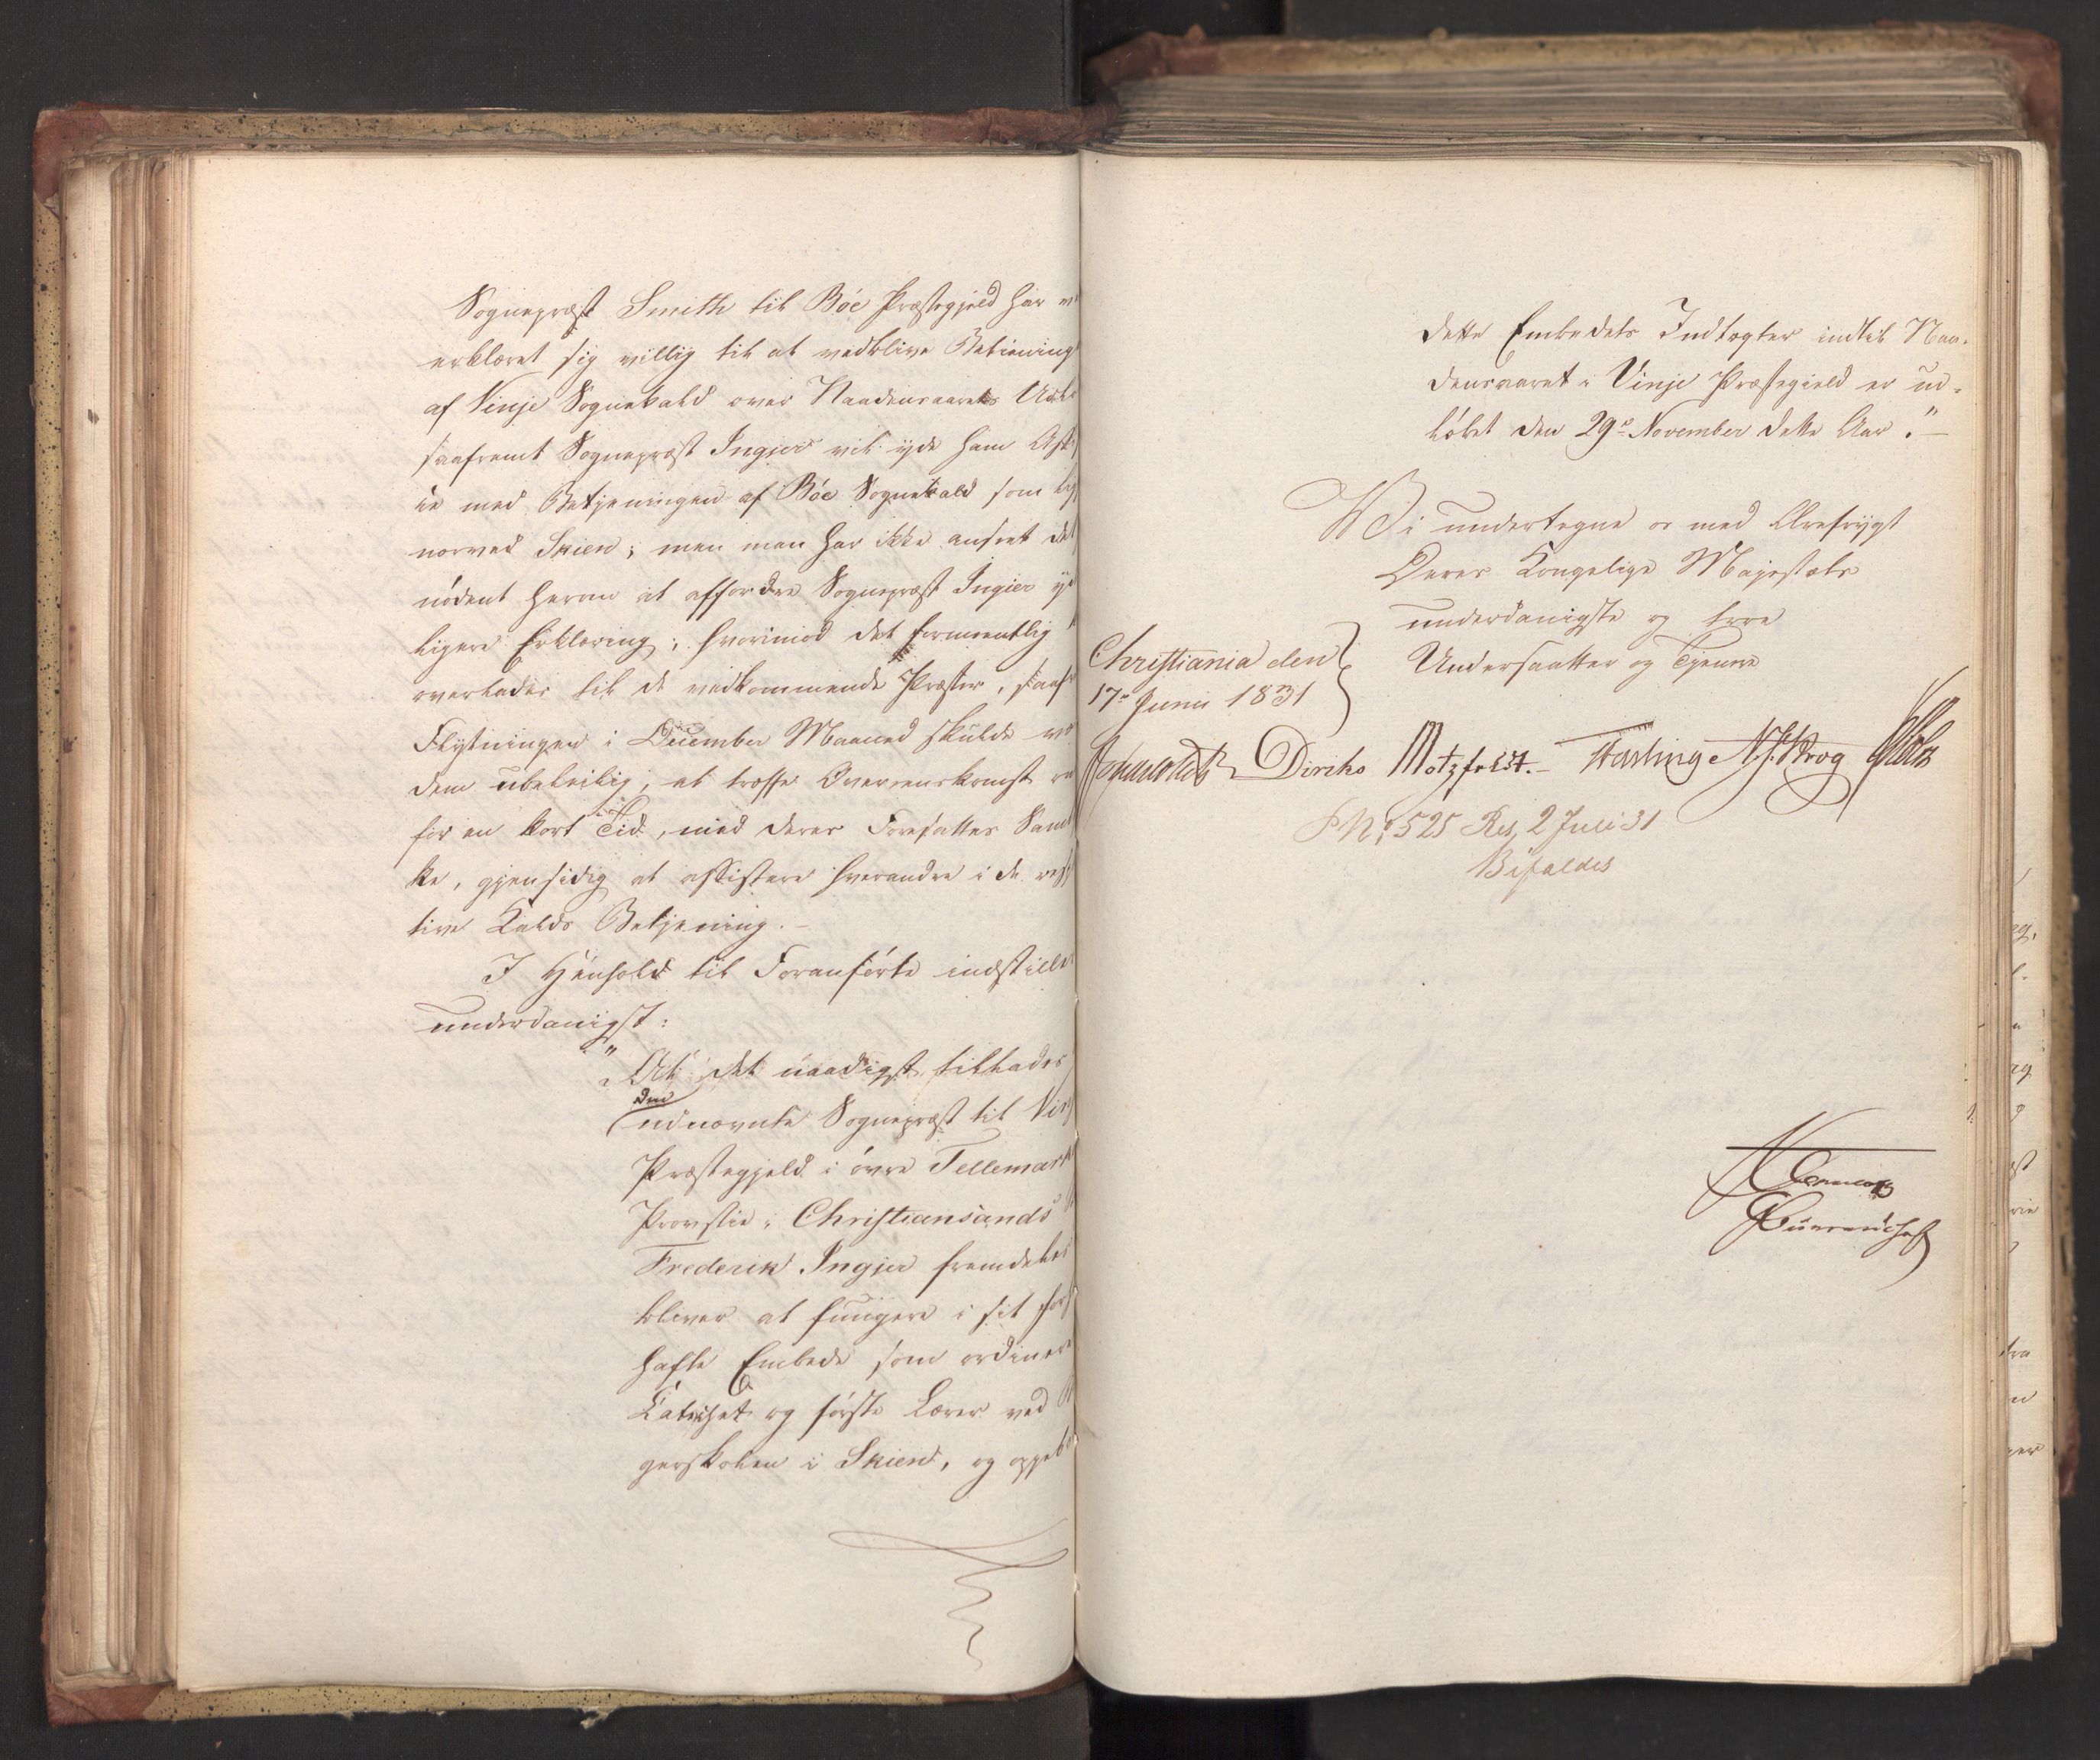 Sognepræst Smith til Böe Præstegjeld har
erklæret sig villig til at vedblive Betiening
af Vinje Sognekald over Naadensaarets
saafremt Sognepræst Ingier vil yde ham
med Betjeningen af Böe Sognekald som
nærved Skien; men man har ikke anseet det
nödent herom at affordre Sognepræst Ingier
ligere Erklæring; hvorimod det formeentlig
overlades til de vedkommende Præster, saafr
Flytningen i December Maaned skulde
dem ubeleilig, at træffe Overeenskomst
for en kort Tid, med deres Foresattes Samt
ke, gjensidig at assistere hverandre i de
tive Kalds Betjening.
I Henhold til Foranförte indstilles
underdanigst:
"At det naadigst tillades
den
udnævnte Sognepræst til Vin
Præstegjeld i övre Tellemark
Provstie i Christiansands
Frederik Ingier fremdeles
bliver at fungere i sit for
hafte Embede som ordiner
Catechet og förste Lærer ved
gerskolen i Skien, og oppeb
dette Embedets Indtægter indtil Naa-
densaaret i Vinje Præstegield er ud-
löbet den 29de November dette Aar."
Vi undertegne os med Ærefrygt
Deres Kongelige Majestæts
underdanigste og troe
Undersaatter og Tjenere
Christiania den
17de Junii 1831
Diriks Motzfeldt. Fasting N. J. Krog
P No 525 Res, 2 Juli 31
Bifaldes